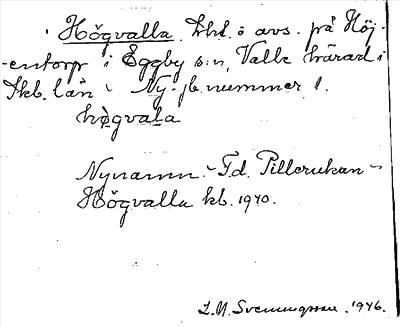 Högvalla. Lht. o avs. på Höj-
-entorp i Eggby s:n, Valle härad i
Skb. län. Ny-jb. nummer 1.
högvala
Nynamn.- F.d. Pillerukan -
Högvalla kb. 1940.
L.M. Svenungsson. 1946.